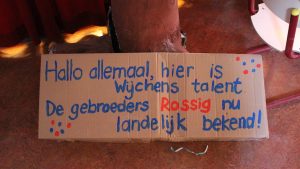 Hallo allemaal, hier is
Wychens talent
De gebroeders Rossig nu
landelijk bekend!